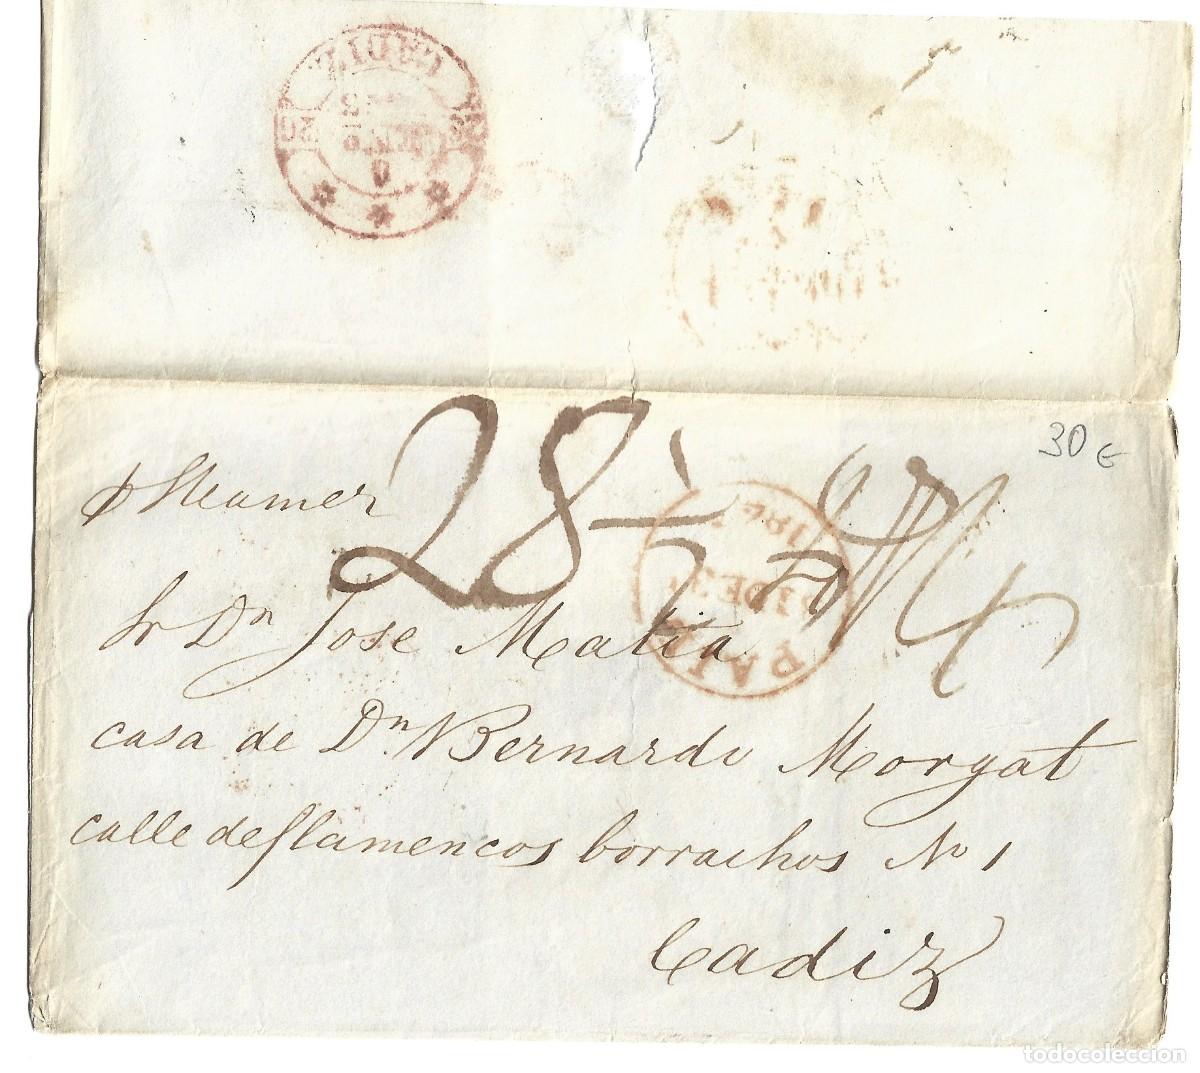 CADIZ
30 €
28 1/2
p Steamer
PAID
Sr Dn Jose Matia
casa de Dn Bernardo Morgat
calle de flamencos borrachos No 1
Cadiz
todocoleccion